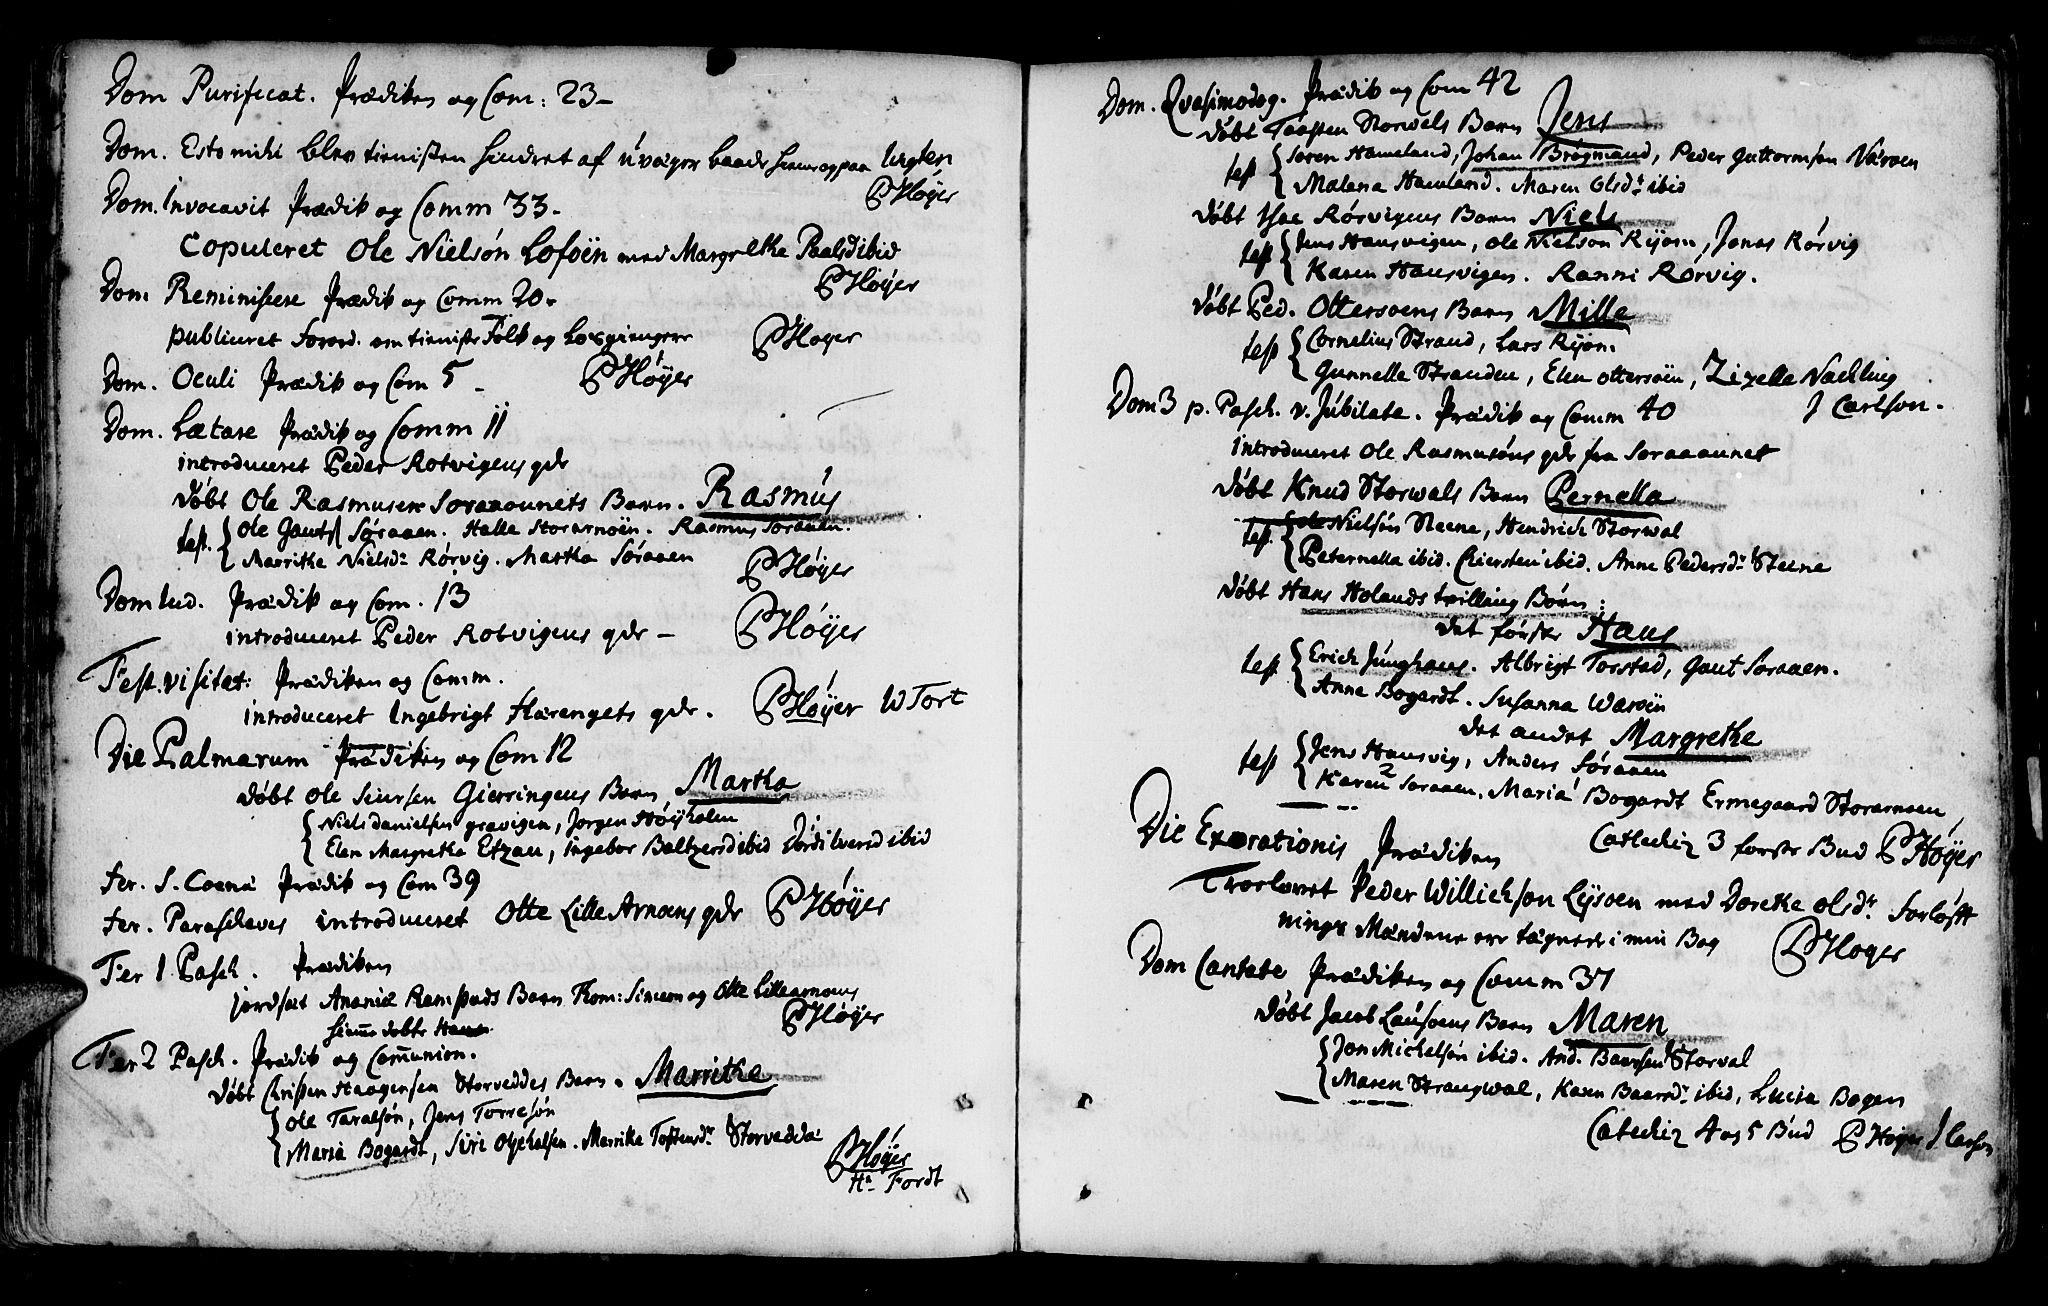 Dom Purificat. Prædiken og Com: 23 –
Dom. Esto mihi blev tienisten hindret af uvæyer baade hiem og paa
PHøyer
Dom. Invocavit Prædik og Comm 33 –
Copuleret Ole Nielsøn Lofoen med Margrethe Paalsd ibid
PHøyer
Dom Reminiscere Prædik og Comm 20 –
publiceret Forord. om tieniste Folk og Løsgiengere PHøyer
Dom. Oculi Prædik og Com 5 – PHøyer
Dom. Lætare Prædik og Comm 11
introduceret Peder Rotvigens qde
døbt Ole Rasmusen Soraaunets Barn. Rasmus
test. { Ole Gauts Søraaen. Halle Storarnøen. Rasmus Soraaen.
Marrithe Nielsdr Rørvig. Martha Søraaen
PHøyer
Dom Iud. Prædik og Com. 13
introduceret Peder Rotvigens qde – PHøyer
Fest. visitat: Prædiken og Comm.
introduceret Ingebrigt Harengets qde. PHøyer W Tort
Die Palmarum Prædiken og Com 12
døbt Ole Siursen Gierringens Barn Martha
{ Niels danielsen gravigen, Jørgen Høyholm
Elen Margretha Etzau, Ingebor Baltzersd ibid Dordi Iversd ibid
Fer. S. Coenæ Prædik og Com 39
Fer. Parasceves introduceret Otte Lille Arnøens qde PHøyer
Fer 1 Pasch. Prædiken
jordsat Ananiæ Ramsvigs Barn Hom: Simeon og Otte Lillearnøens
hiemme døbte Hans PHøyer
Fer 2 Pasch. Prædik og Communion.
døbt Christen Haagensen Storveddes Barn. Marrithe
{ Ole Taralsøn, Jens Torresøn
Maria Bogardt, Siri Michelsen. Marrithe Tostensdr Storvedda
PHøyer
Hr Fordt
Dom. Qvasimodog. Prædik og Com 42
døbt Taasten Storwals Barn Jens
test { Søren Hameland, Johan Brøgmand, Peder Guttormsøn Værøen
Malena Hamland. Maren Olsdr ibid
døbt Isac Rørvigens Barn Niels
test { Jens Hansvigen, Ole Nielsøn Rijorn, Jonas Rørvig
Karen Hansvigen. Ranni Rørvig.
døbt Ped. Ottersøens Barn Mille
test { Cornelius Strand, Lars Rijorn.
Gunnelle Stranden, Elen Ottersøin, Zizelle Nærling
Dom 3 p. Pasch. v. Jubilate. Prædik og Comm 40 J Carlson.
introduceret Ole Rasmusøns qde fra Soraaunet
døbt Knud Storwals Barn Pernella
test. { Ole Nielsøn Steene, Hendrich Storwal
Peternella ibid. Chiersten ibid. Anne Pedersdr Steene
døbt Hans Holands tvilling Børn:
det første Hans
test { Erich Junghans. Albrigt Torstad, Gaut Soraaen.
Anne Bogardt. Susanna Warøin
det andet Margrethe
test { Jens Hansvig, Anders Søraaen
Karen Soraaen, Maria Bogardt Ermegaard Storarnøen
Catechiz 3 første Bud PHøyer
Die Exorationis Prædiken
Troelovet Peder Willichsøn Lysøen med Dorethe Olsdr. Forløfft
nings Mændene ere tægnede i min Bog PHoyer
Dom Cantate Prædiken og Comm 37
døbt Jacob Lausøens Barn Maren
{ Jon Michelsøn ibid. And. Baarsen Storval
Maren Strangwal, Karen Baarsdr ibid, Lucia Bogen
Catechiz 4 og 5 Bud PHøyer J Carlson